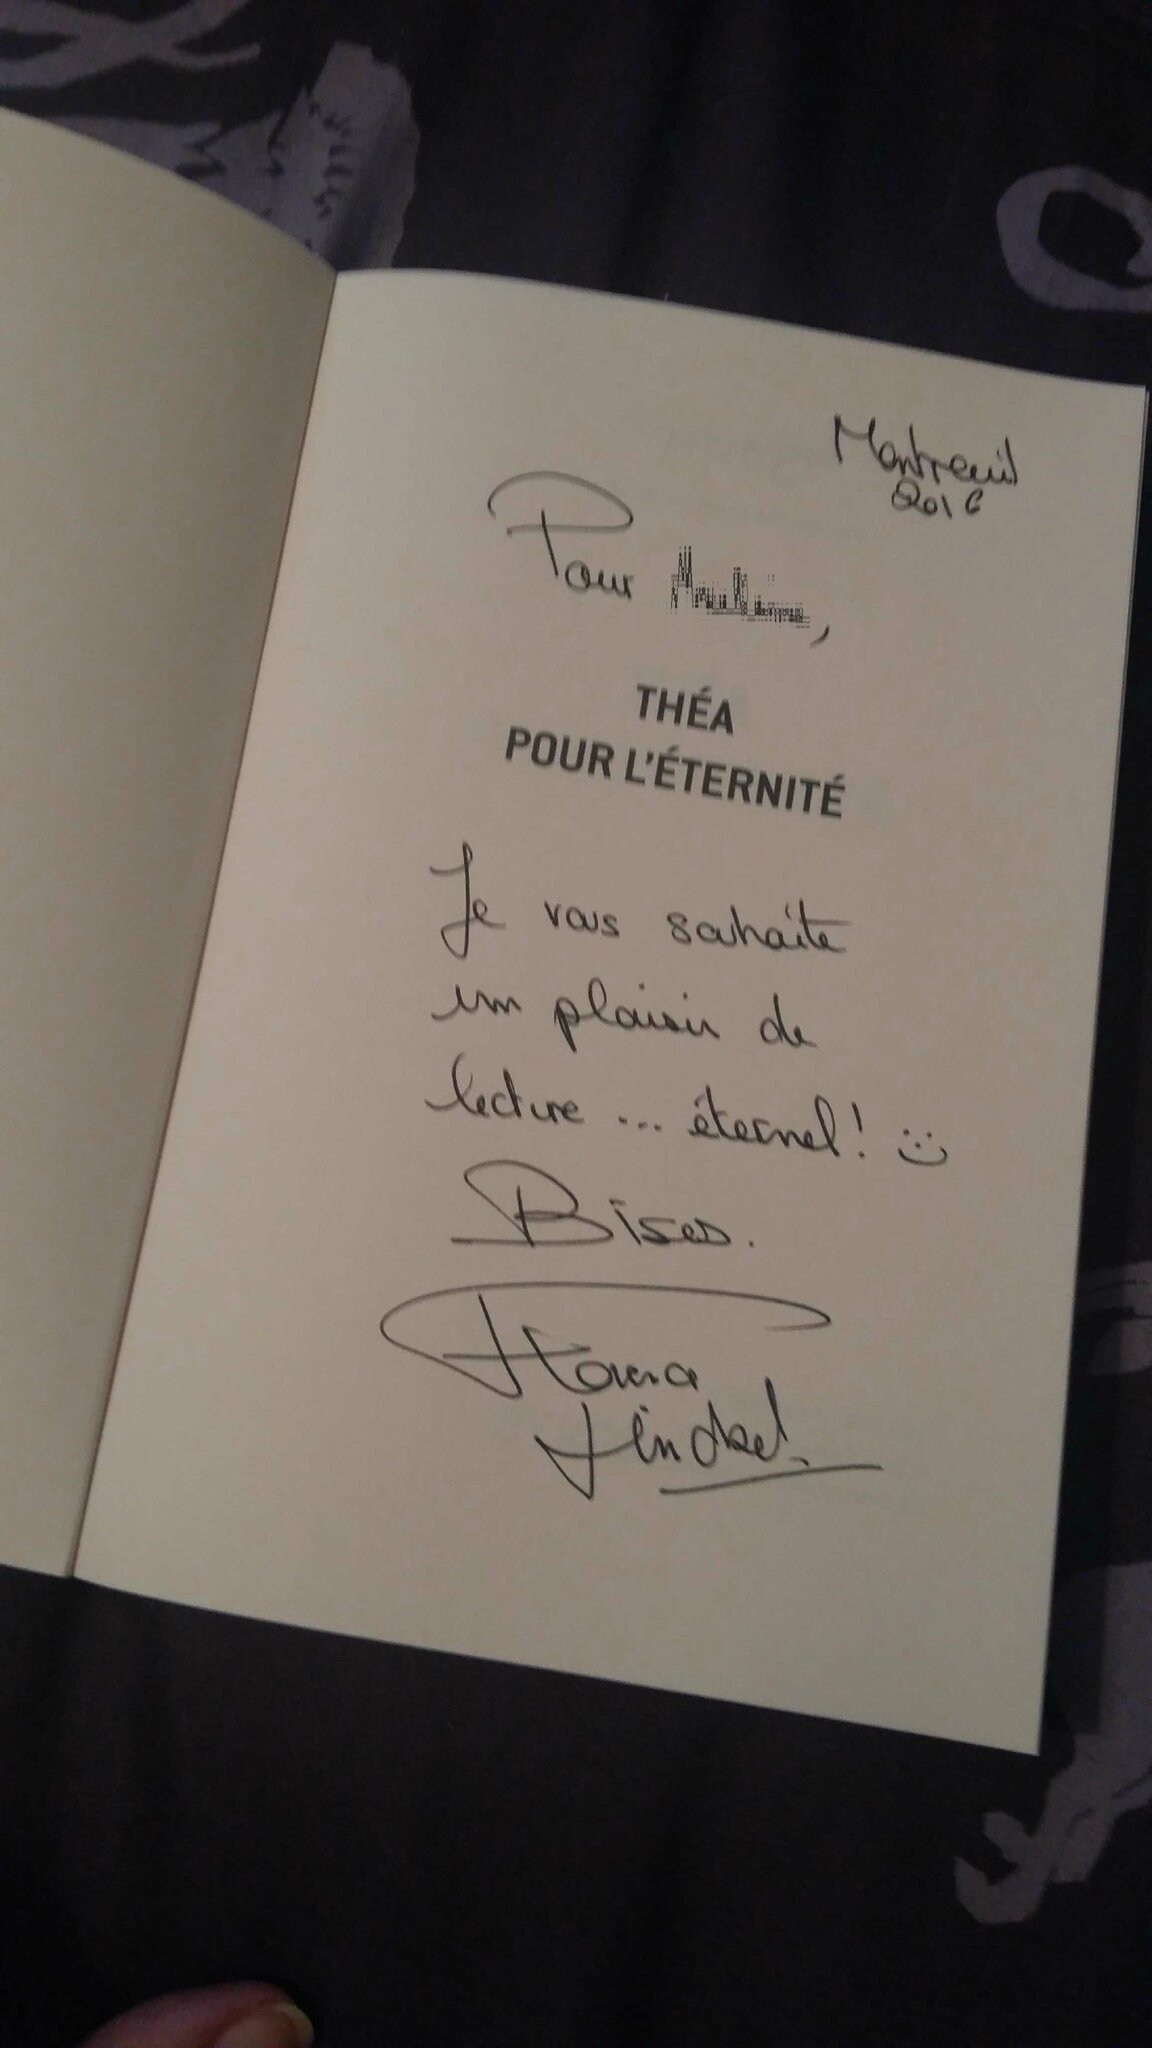 Montreuil
2016
Pour
,
THÉA
POUR L'ÉTERNITÉ
Je vous souhaite
un plaisir de
lecture ... éternel! :)
Bises.
Florence
Hinckel.